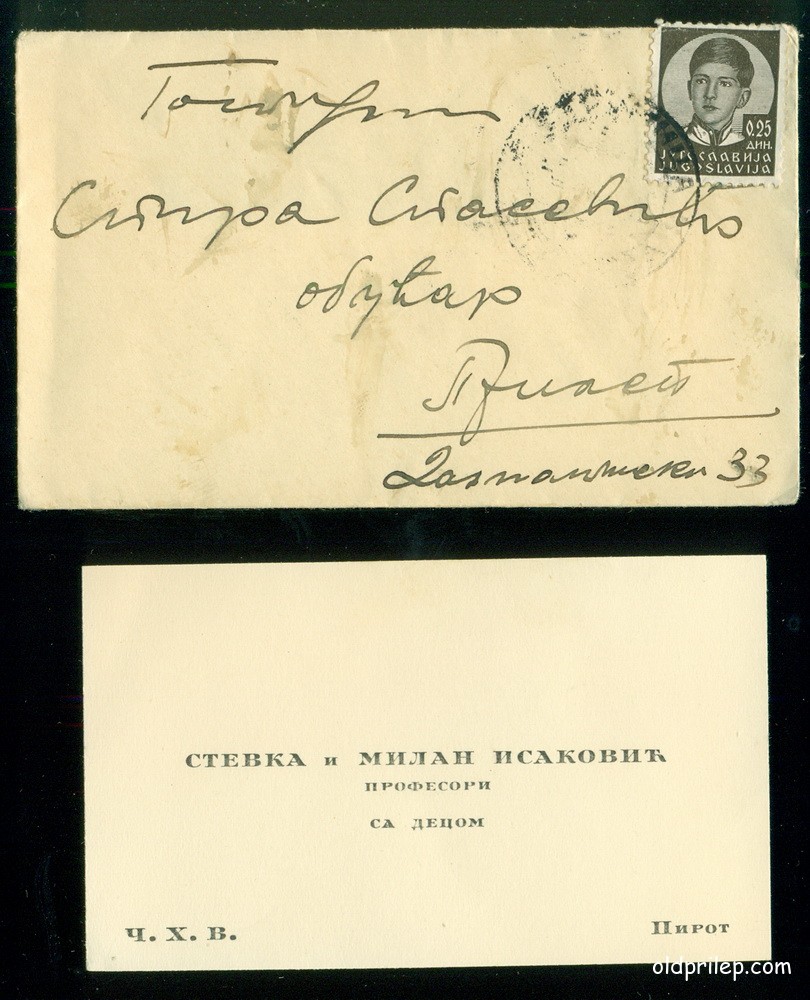 Господин
0.25
ДИН.
ЈУГОСЛАВИЈА
JUGOSLAVIJA
Спира Спасевић
обућар
33
СТЕВКА и МИЛАН ИСАКОВИЋ
ПРОФЕСОРИ
СА ДЕЦОМ
Ч. Х. В.
Пирот
oldprilep.com